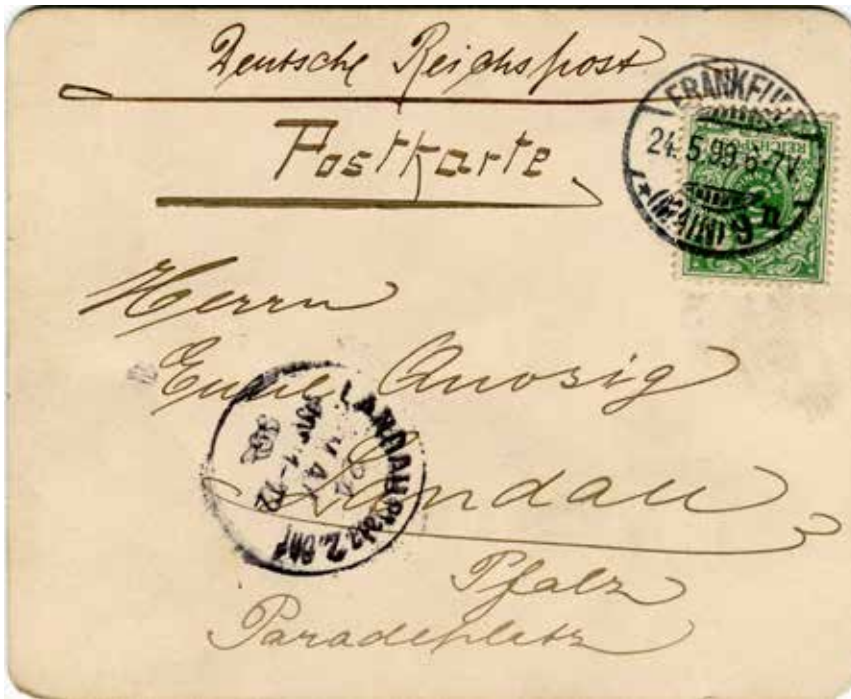 Deutsche Reichspost
Postkarte
FRANKFURT
24.5.99.6-7V.
*(MAIN) 9
REICHSPOST
Herrn
LANDAU Pfalz 2.
Landau
Pfalz
Paradeplatz